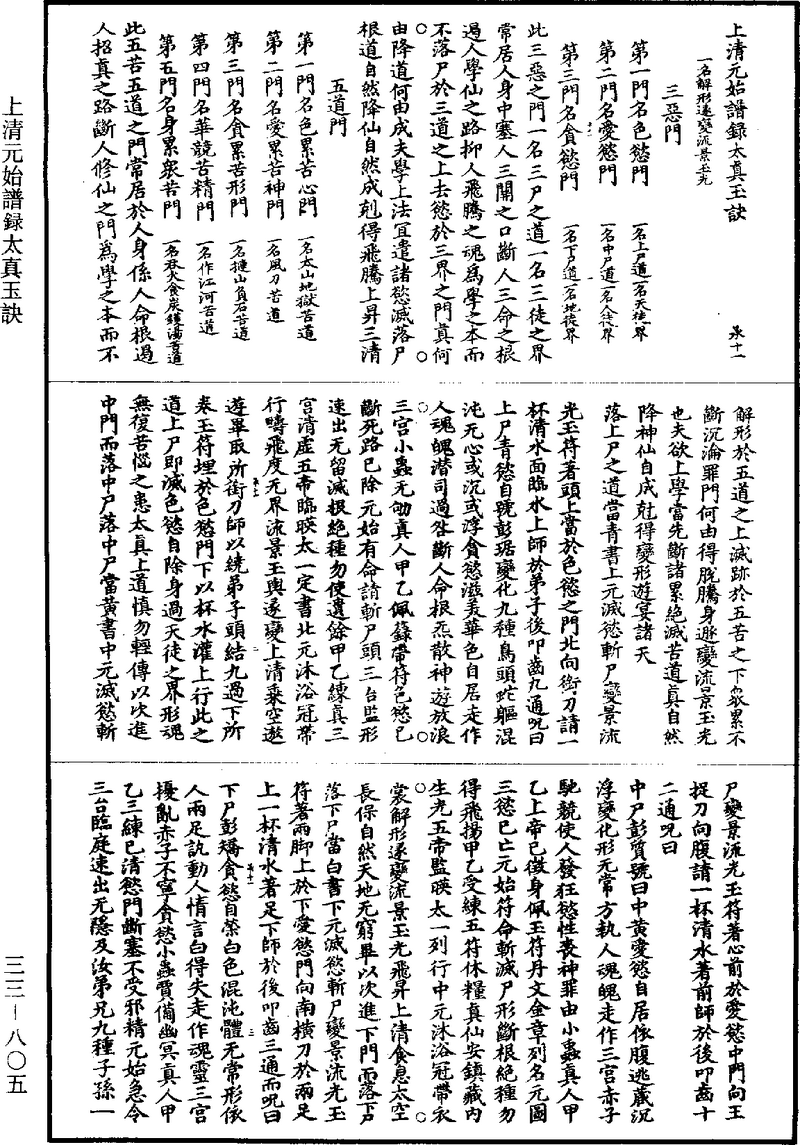 上清元始譜録太真玉訣
一名解形遯變流景玉光
承十一
三惡門
第一門名色慾門
一名上尸道一名天徒界
第二門名愛慾門
一名中尸道一名人徒界
第三門名貪慾門
一名下尸道一名地徒界
此三惡之門一名三尸之道一名三徒之界
常居人身中塞人三關之口斷人三命之根
遏人學仙之路抑人飛騰之魂為學之本而
不落尸於三道之上去慾於三界之門真何
由降道何由成夫學上法宜遣諸慾滅落尸
根道自然降仙自然成剋得飛騰上昇三清
五道門
第一門名色累苦心門
一名太山地獄苦道
第二門名愛累苦神門
一名風刀苦道
第三門名貪累苦形門
一名㨷山負石苦道
第四門名華競苦精門
一名作江河苦道
第五門名身累衆苦門
一名吞火食炭鑊湯苦道
此五苦五道之門常居於人身係人命根遏
人招真之路斷人修仙之門為學之本而不
解形於五道之上滅跡於五苦之下衆累不
斷沉淪罪門何由得脫騰身遯變流景玉光
也夫欲上學當先斷諸累絶滅苦道真自然
降神仙自成剋得變形遊宴諸天
落上尸之道當青書上元滅慾斬尸變景流
光玉符著頭上當於色慾之門北向銜刀請一
杯清水面臨水上師於弟子後叩齒九通呪曰
上尸青慾自號彭琚變化九種鳥頭蛇軀混
沌无心或沉或浮貪慾滋美華色自居走作
人魂魄潛司過咎斷人命根炁散神遊放浪
三宫小蟲无劬真人甲乙佩籙帶符色慾已
斷死路已除元始有命請斬尸頭三台監形
速出无留滅根絶種勿使遺餘甲乙練真三
宫清虚五帝臨暎太一定書北元沐浴冠帶
行疇飛度无界流景玉輿遯變上清乘空遨
遊畢取所銜刀師以繞弟子頭結九過下所
奉玉符埋於色慾門下以杯水灌上行此之
道上尸即滅色慾自除身過天徒之界形魂
無復苦惱之患太真上道慎勿輕傳以次進
中門而落中尸落中尸當黄書中元滅慾斬
尸變景流光玉符著心前於愛慾中門向王
捉刀向腹請一杯清水著前師於後叩齒十
二通呪曰
中尸彭質號曰中黄愛慾自居依腹逃藏沉
浮變化形无常方執人魂魄走作三宫赤子
馳競使人發狂慾性喪神罪由小蟲真人甲
乙上帝已徵身佩玉符丹文金章列名元圖
三慾已亡元始符命斬滅尸形斷根絶種勿
得飛揚甲乙受練五符休糧真仙安鎮藏内
生光五帝監暎太一列行中元沐浴冠帶衣
裳解形遯變流景玉光飛昇上清食息太空
長保自然天地无窮畢以次進下門而落下尸
落下尸當白書下元滅慾斬尸變景流光玉
符著兩脚上於下愛慾門向南横刀於兩足
上一杯清水著足下師於後叩齒三通而呪曰
下尸彭矯貪慾自縈白色混沌體无常形依
人兩足訊動人情言白得失走作魂靈三宫
擾亂赤子不寧貪慾小蟲質備幽冥真人甲
乙三練已清慾門斷塞不受邪精元始急令
三台臨庭速出无隱及汝弟兄九種子孫一
上清元始譜録太真玉訣
三三—八〇五